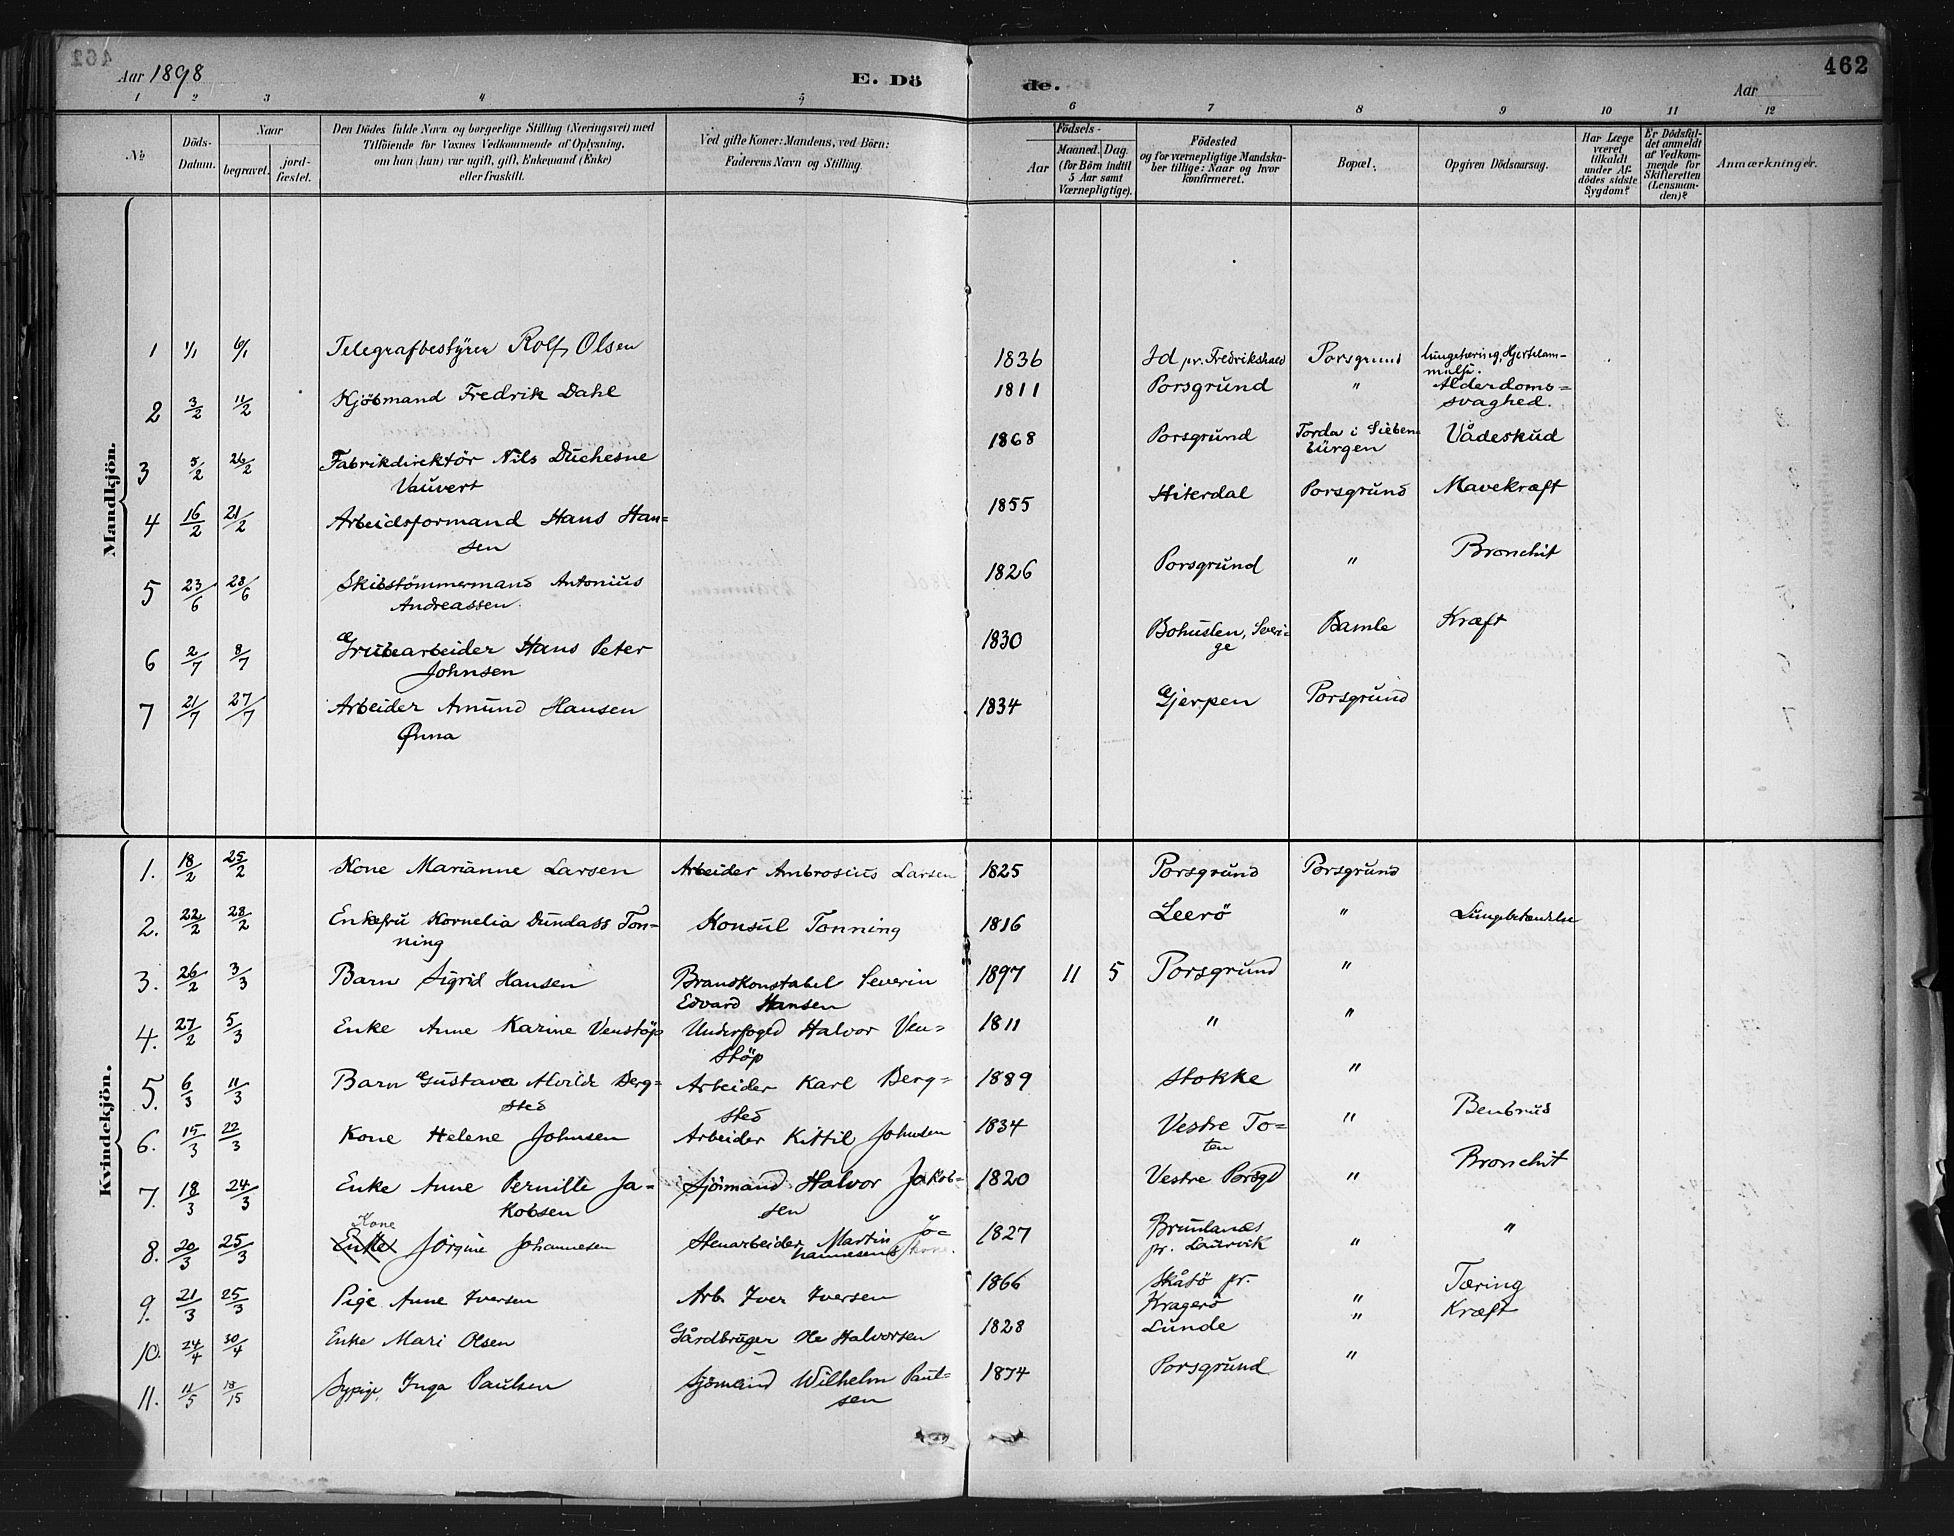 462
Aar 1898
E. Dö
de.
Aar
462
1 2 3 4 5 6 7 8 9 10 11 12
No
Döds-
Datum.
Naar
begravet.
jord-
fæstet.
Den Dödes fulde Navn og borgerlige Stilling (Næringsvei) med
Tilföiende for Voxnes Vedkommende af Oplysning,
om han (hun) var ugift, gift, Enkemand (Enke)
eller fraskilt.
Ved gifte Koner: Mandens, ved Börn:
Faderens Navn og Stilling.
Födsels-
Aar
Maaned. Dag.
(for Börn indtil
5 Aar samt
Værnepligtige).
Födested
og for værnepligtige Mandska-
ber tillige: Naar og hvor
konfirmeret.
Bopæl.
Opgiven Dödsaarsag.
Har Læge
været
tilkaldt
under Af-
dödes sidste
Sygdom?
Er Dödsfal-
det anmeldt
af Vedkom-
mende for
Skifteretten
(Lensman-
den)?
Anmærkninger.
Mandkjön.
1 1/1 6/1 Telegrafbestyrer Rolf Olsen 1836 Id pr. Fredrikshald Porsgrund Lungetæring, Hjertelam-
melse.
2 3/2 11/2 Kjöbmand Fredrik Dahl 1811 Porsgrund " Alderdoms=
svaghed.
3 5/2 26/2 Fabrikdirektör Nils Duchesne 1868 Porsgrund Torda i Sieben Vådeskud
Vauvert bürgen
4 16/2 21/2 Arbeidsformand Hans Han= 1855 Hiterdal Porsgrund Mavekræft
sen
5 23/6 28/6 Skibstömmermand Antonius 1826 Porsgrund " Bronchit
Andreassen.
6 2/7 8/7 Grubearbeider Hans Peter 1830 Bohuslen, Sveri= Bamle Kræft
Johnsen ge
7 21/7 27/7 Arbeider Amund Hansen 1834 Gjerpen Porsgrund
Ønna
Kvindekjön.
1. 18/2 25/2 Kone Marianne Larsen Arbeider Ambrosius Larsen 1825 Porsgrund Porsgrund
2. 22/2 28/2 Enkefru Kornelia Dundass Ton= Konsul Tonning 1816 Leerö " Lungebetændelse
ning
3. 26/2 3/3 Barn Sigrid Hansen Brandkonstabel Severin 1897 11 5 Porsgrund "
Edvard Hansen
4. 27/2 5/3 Enke Anne Karine Venstöp Underfoged Halvor Ven= 1811 " "
stöp
5. 6/3 11/3 Barn Gustava Alvilde Berg= Arbeider Karl Berg= 1889 Stokke "
sted sted
6. 15/3 22/3 Kone Helene Johnsen Arbeider Kittil Johnsen 1834 Vestre To= " Benbrud
ten
7. 18/3 24/3 Enke Anne Pernille Ja- Sjömand Halvor Jakob- 1820 Vestre Porsgd " Bronchit
kobsen sen
Kone
8. 20/3 25/3 Enke Jörgine Johannesen Stenarbeider Martin Jo= 1827 Brunlanæs " "
hannesens kone. pr. Laurvik
9. 21/3 25/3 Pige Anne Iversen Arb. Iver Iversen 1866 Skåtö pr. " Tæring
Kragerö
10. 24/4 30/4 Enke Mari Olsen Gårdbruger Ole Halvorsen 1828 Lunde " Kræft
11. 11/5 18/5 Sypige, Inga Paulsen Sjömand Wilhelm Paul- 1874 Porsgrund "
sen